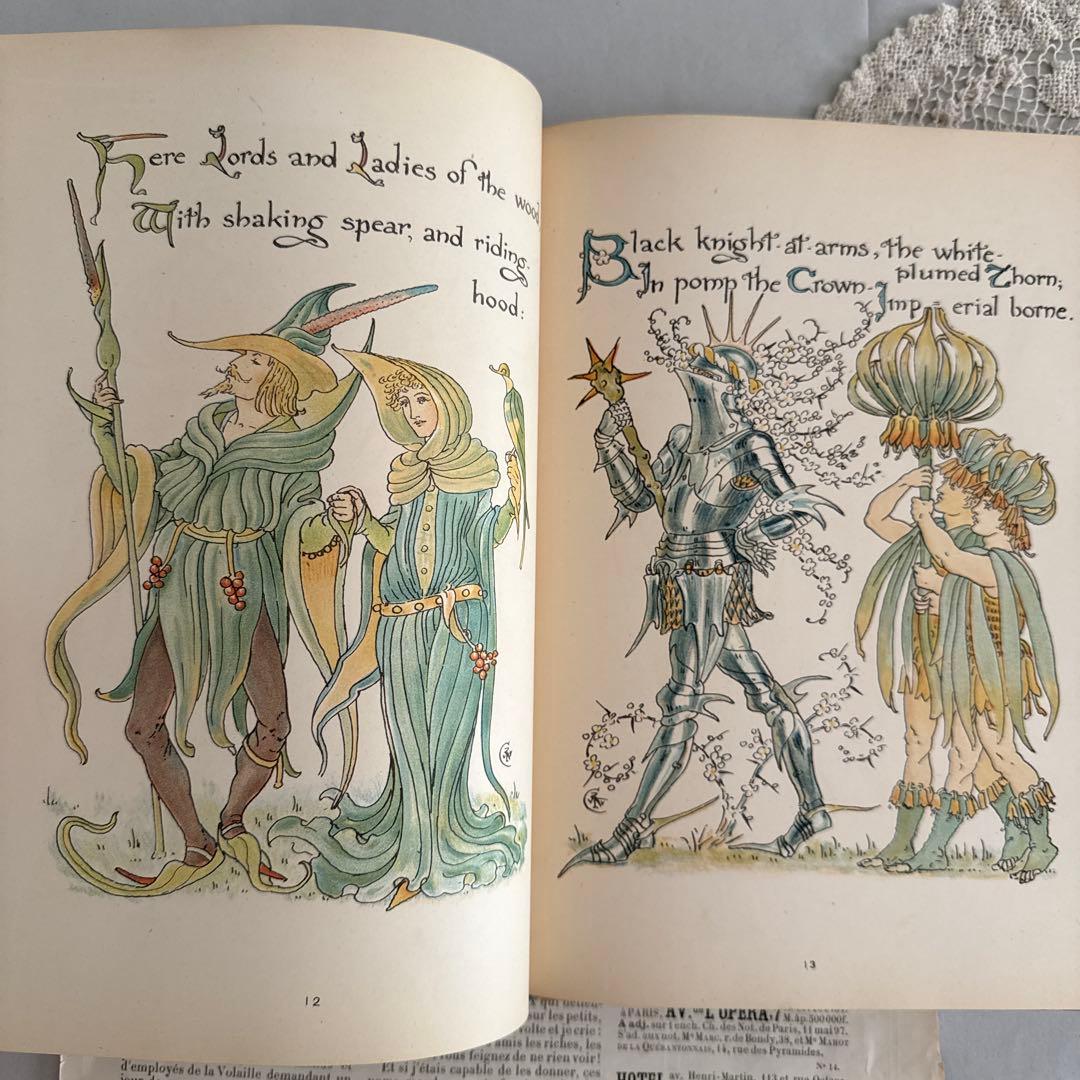 Here Lords and Ladies of the wood
With shaking spear, and riding-
hood:
12
Black knight-at-arms, the white-
plumed Thorn;
In pomp the Crown-Imperial borne.
13
sur les petits,
volte et je crie:
amis les riches, les
feignez de ne rien voir!
d'employés de la Volaille demandant un
Et si j'étais capable de les donner, ces
à PARIS, AV. DE L'OPÉRA, 7 M. à p. 500 000f.
A adj. sur 1 ench. Ch. des Not. de Paris, 11 mai 97.
S'ad. aux not. Mes MARC, r. de Bondy, 38, et Mes MAHOT
DE LA QUÉRANTONNAIS, 14, rue des Pyramides.
N° 14.
HOTEL av. Henri-Martin, 113 et rue